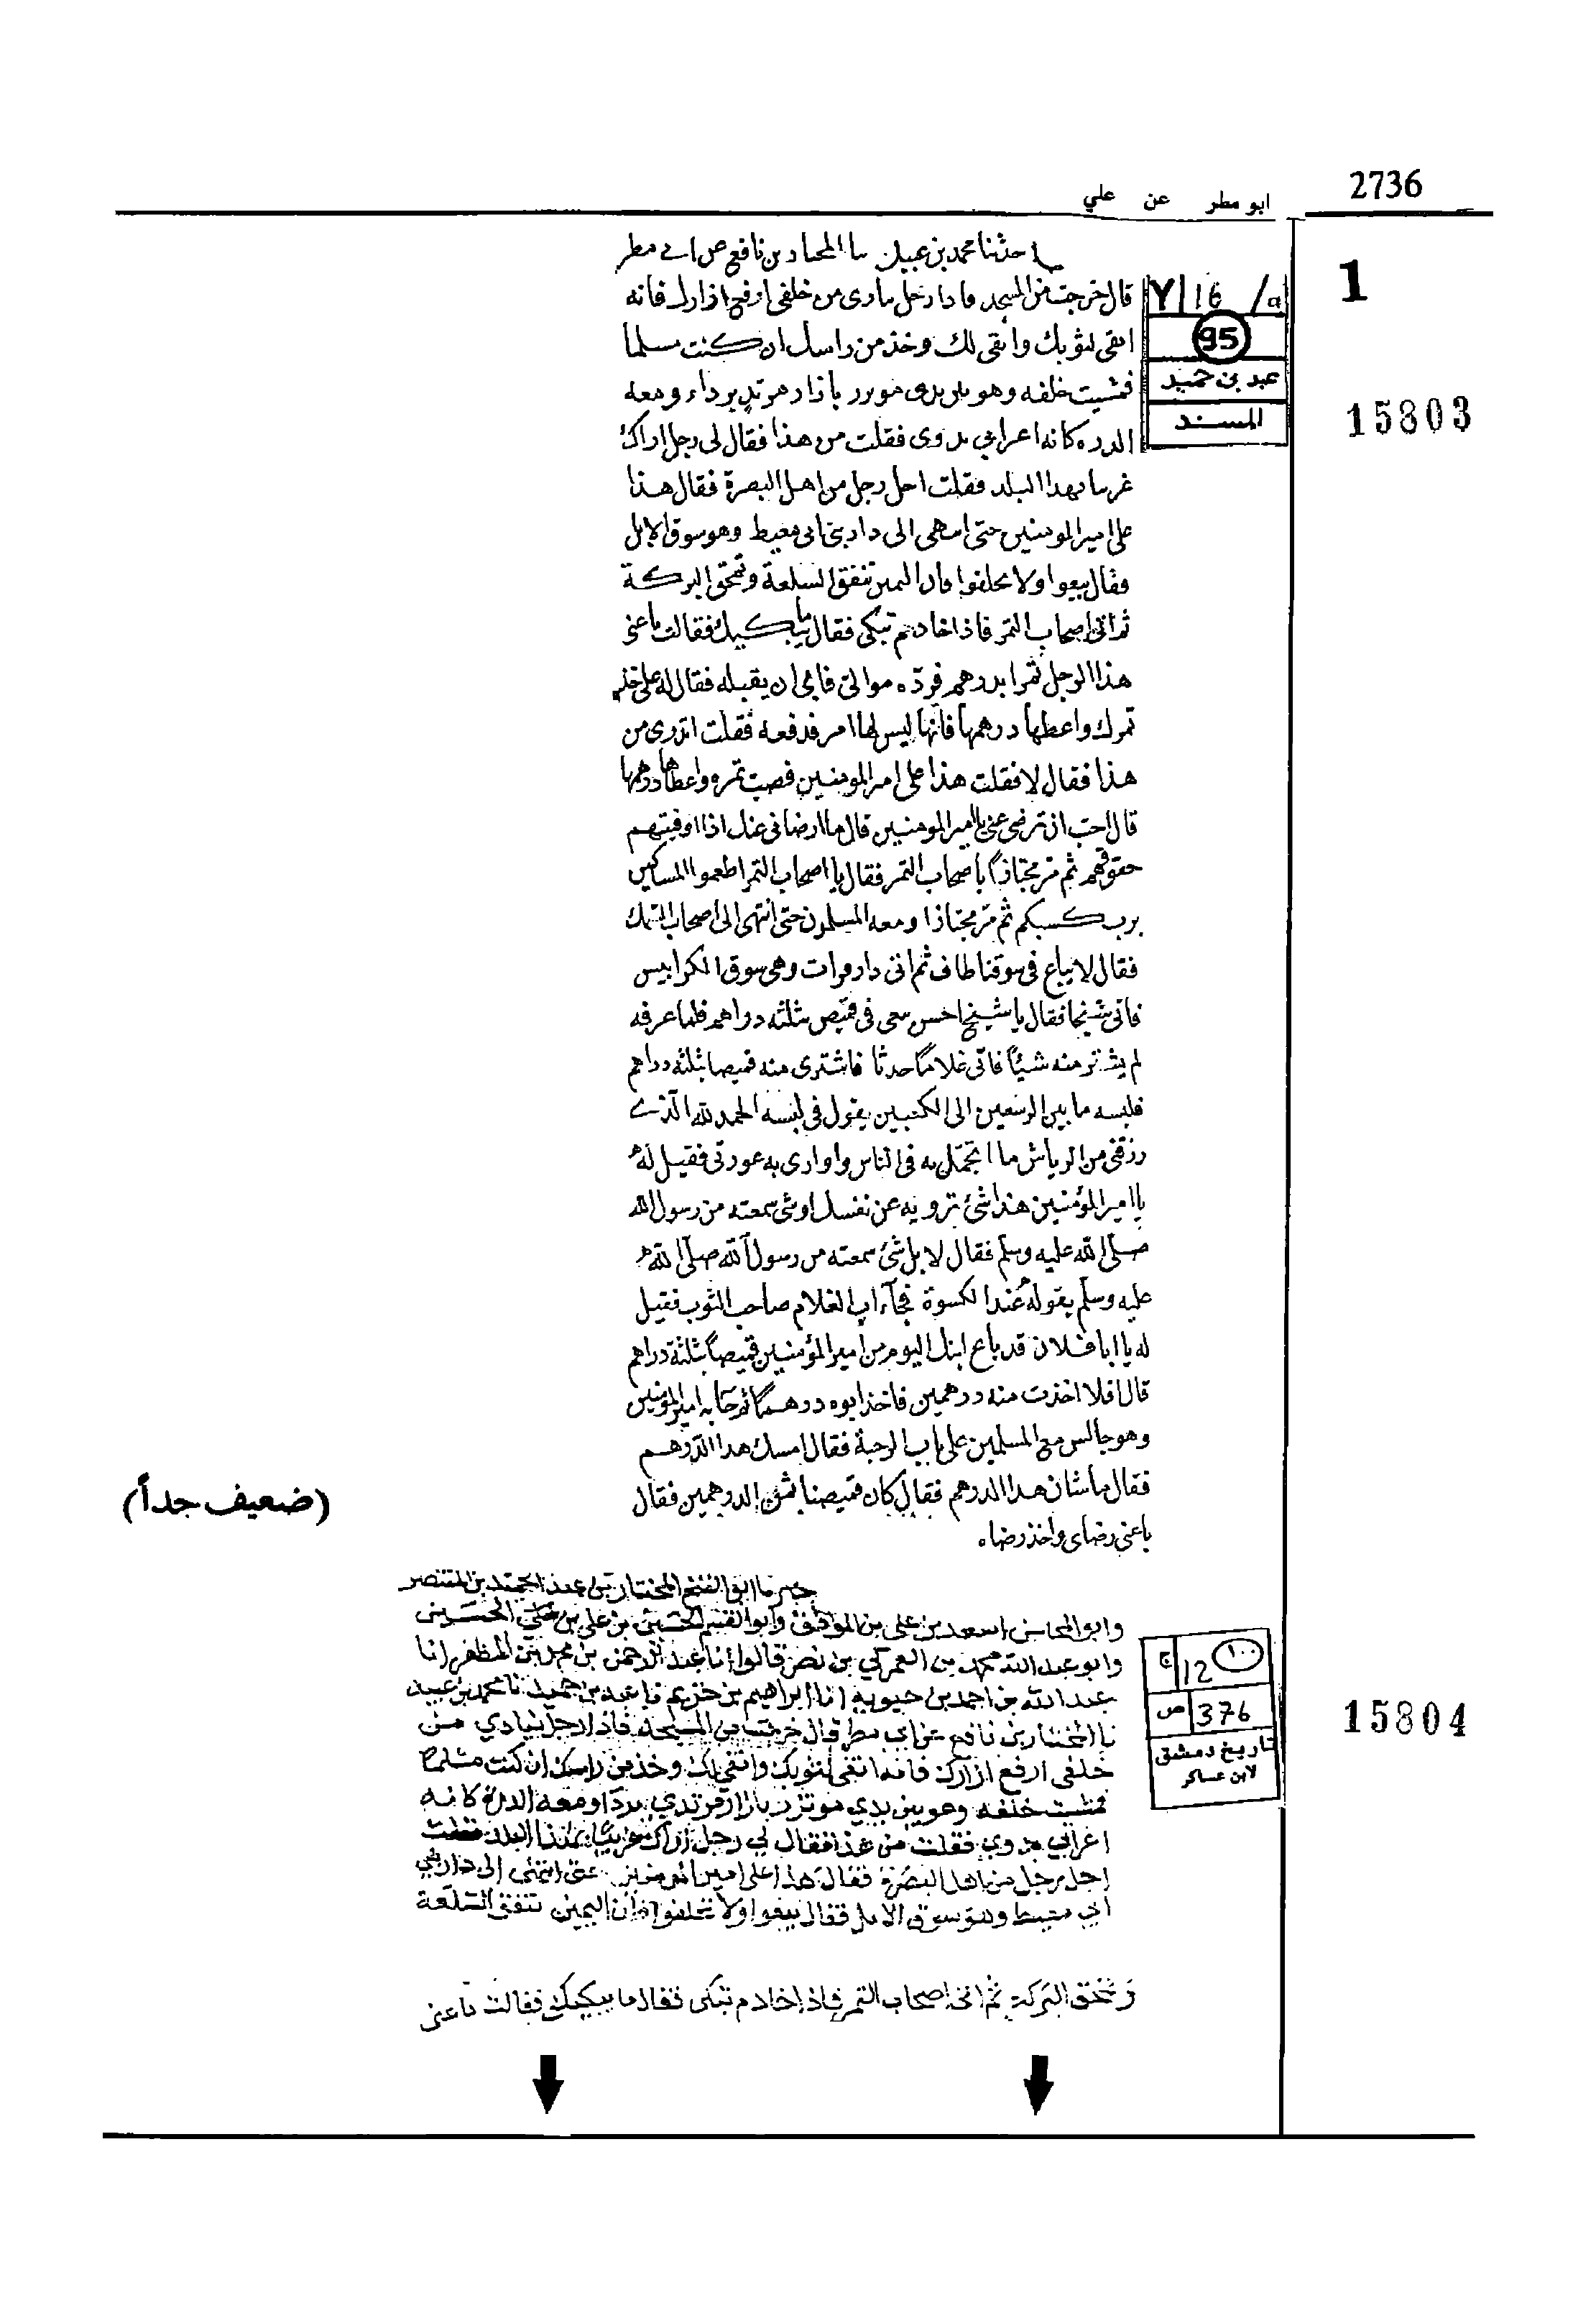 2736
ابو مطر عن علي
1
حدثنا محمد بن عبيد نا المختار بن نافع عن ابي مطر
قال خرجت من المسجد فاذا رجل ينادى من خلفى ارفع ازارك فانه
انقى لثوبك وابقى لك وخذ من راسك ان كنت مسلما
فمشيت خلفه وهو بين يدى موتزر بازار مرتد برداء ومعه
الدره كانه اعرابي بدوى فقلت من هذا فقال لى رجل اراك
غريبا بهذا البلد فقلت اجل رجل من اهل البصرة فقال هذا
على امير المومنين حتى انتهى الى دار بنى ابى معيط وهو سوق الابل
فقال بيعوا ولا تحلفوا فان اليمين تنفق السلعة وتمحق البركة
ثم اتى اصحاب التمر فاذا خادم تبكى فقال ما يبكيك فقالت باعنى
هذا الرجل تمرا بدرهم فرده موالى فابى ان يقبله فقال له على خذ
تمرك واعطها درهمها فانها ليس لها امر فدفعه فقلت اتدرى من
هذا فقال لا فقلت هذا على امير المومنين فصب تمره واعطاها درهمها
قال احب ان ترضى عنى يا امير المومنين قال ما ارضانى عنك اذا اوفيتهم
حقوقهم ثم مر مجتازا باصحاب التمر فقال يا اصحاب التمر اطعموا المساكين
يرب كسبكم ثم مر مجتازا ومعه المسلمون حتى انتهى الى اصحاب السمك
فقال لا يباع فى سوقنا طاف ثم اتى دار فرات وهى سوق الكرابيس
فاتى شيخا فقال يا شيخ احسن بيعى فى قميص بثلثه دراهم فلما عرفه
لم يشتر منه شيئا فاتى غلاما حدثا فاشترى منه قميصا بثلثه دراهم
فلبسه ما بين الرسغين الى الكعبين يقول فى لبسه الحمد لله الذى
رزقنى من الرياش ما اتجمل به فى الناس واوارى به عورتى فقيل له
يا امير المؤمنين هذا شئ ترويه عن نفسك او شئ سمعته من رسول الله
صلى الله عليه وسلم فقال لا بل شئ سمعته من رسول الله صلى الله
عليه وسلم يقوله عند الكسوة فجآء اب الغلام صاحب الثوب فقيل
له يا ابا فلان قد باع ابنك اليوم من امير المؤمنين قميصا بثلثة دراهم
قال افلا اخذت منه درهمين فاخذ ابوه درهما ثم جآء به امير المومنين
وهو جالس مع المسلمين على باب الرحبة فقال امسك هذا الدرهم
فقال ما شان هذا الدرهم فقال كان قميصنا بثمن الدرهمين فقال
باعنى رضاى واخذ رضاه
Y 16 /a
95
عبد بن حميد
المسند
15803
(ضعيف جداً)
ابو الفتح المختار بن عبد الحميد بن المنتصر
وابو المحاسن اسعد بن علي بن الموفق وابو القسم الحسين بن علي بن الحسين
وابو عبد الله محمد بن العمركي بن نصر قالوا انا عبد الرحمن بن محمد بن المظفر انا
عبد الله بن احمد بن حيويه انا ابراهيم بن خزيم نا عبد بن حميد نا محمد بن عبيد
نا المختار بن نافع عن ابي مطر قال خرجت من المسجد فاذا رجل ينادي من
خلفي ارفع ازارك فانه انقى لثوبك واتقى لك وخذ من راسك ان كنت مسلما
فمشيت خلفه وهو بين يدي موتزر بازار مرتدي بردآ ومعه الدرة كانه
اعرابي بدوي فقلت من هذا فقال لي رجل اراك غريبا بهذا البلد فقلت
اجل رجل من اهل البصرة فقال هذا علي امير المومنين حتى انتهى الى دار بني
ابي معيط وهو سوق الابل فقال بيعوا ولا تحلفوا فان اليمين تنفق السلعة
وتمحق البركة ثم اتى اصحاب التمر فاذا خادم تبكى فقال ما يبكيك فقالت باعنى
ج 12 ١٠٠
ص 376
تاريخ دمشق
لابن عساكر
15804